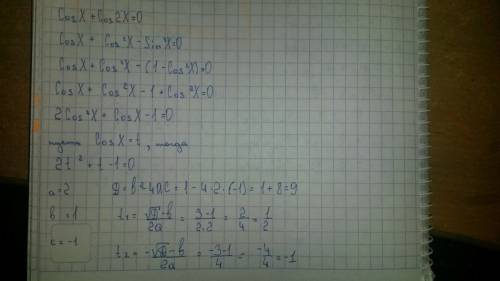 CosX + Cos2X=0
CosX + Cos²X - Sin²X=0
CosX + Cos²X - (1 - Cos²X)=0
CosX + Cos²X - 1 + Cos²X=0
2Cos²X + CosX - 1=0
пусть CosX=t, тогда
2t² + t - 1=0
a=2 D=b²-4ac = 1 - 4·2·(-1) = 1+8=9
b=1 t₁ = (√D - b)/2a = (3-1)/(2·2) = 2/4 = 1/2
c=-1 t₂ = (-√D - b)/2a = (-3-1)/4 = -4/4 = -1